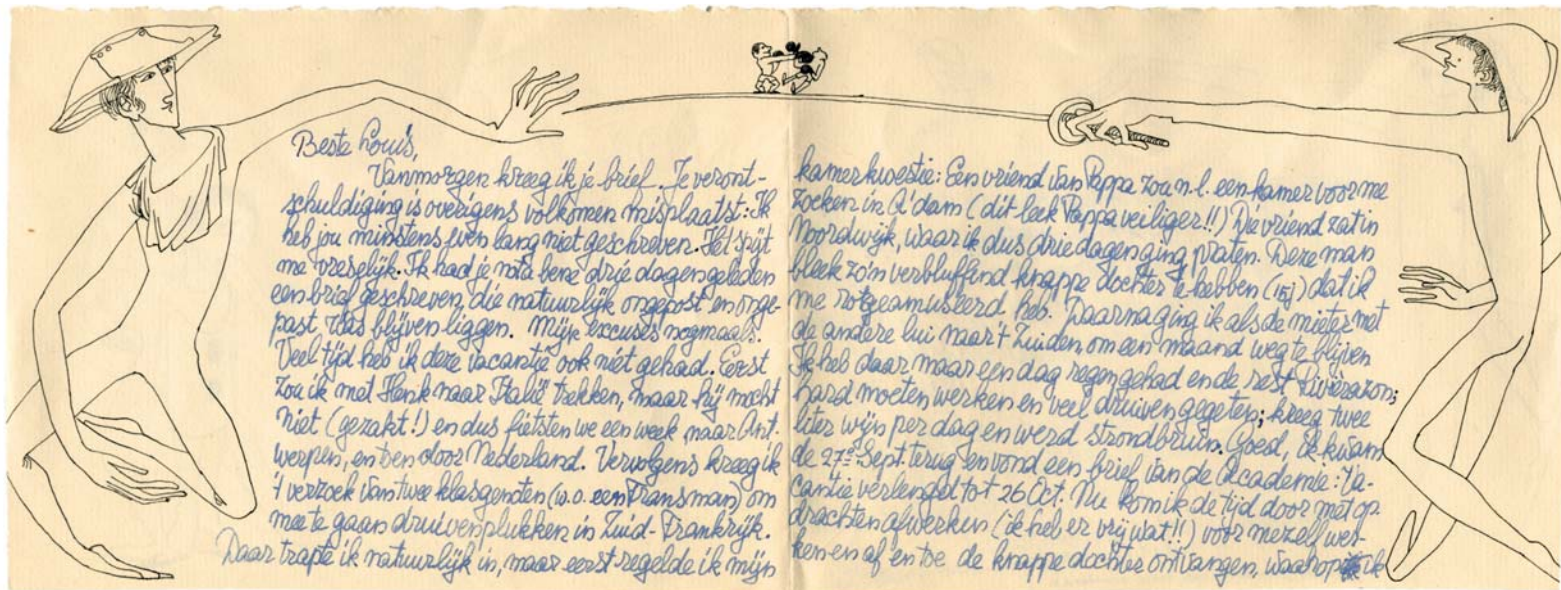 Beste Louis,
Vanmorgen kreeg ik je brief. Je veront-
schuldiging is overigens volkomen misplaatst: Ik
heb jou minstens even lang niet geschreven. Het spijt
me vreselijk. Ik had je nota bene drie dagen geleden
een brief geschreven, die natuurlijk ongepost en onge-
past was blijven liggen. Mijn excuses nogmaals.
Veel tijd heb ik deze vacantie ook niet gehad. Eerst
zou ik met Henk naar Italië trekken, maar hij mocht
niet (gezakt!) en dus fietsten we een week naar Ant-
werpen, en toen door Nederland. Vervolgens kreeg ik
't verzoek van twee klasgenoten (w.o. een Fransman) om
mee te gaan druivenplukken in Zuid-Frankrijk.
Daar trapte ik natuurlijk in, maar eerst regelde ik mijn
kamerkwestie: Een vriend van Pappa zou n.l. een kamer voor me
zoeken in A'dam (dit leek Pappa veiliger!!) Die vriend zat in
Noordwijk, waar ik dus drie dagen ging praten. Deze man
bleek zo'n verbluffend knappe dochter te hebben (15j) dat ik
me rotgeamuseerd heb. Daarna ging ik als de mieter met
de andere lui naar 't Zuiden, om een maand weg te blijven
Ik heb daar maar een dag regen gehad en de rest Rivièrazon;
hard moeten werken en veel druiven gegeten; kreeg twee
liter wijn per dag en werd strondbruin. Goed, ik kwam
de 27e Sept. terug en vond een brief van de Academie: Va-
cantie verlengd tot 26 Oct. Nu kom ik de tijd door met op-
drachten afwerken (ik heb er vrij wat!!) voor mezelf wer-
ken en af en toe de knappe dochter ontvangen, waarop ik